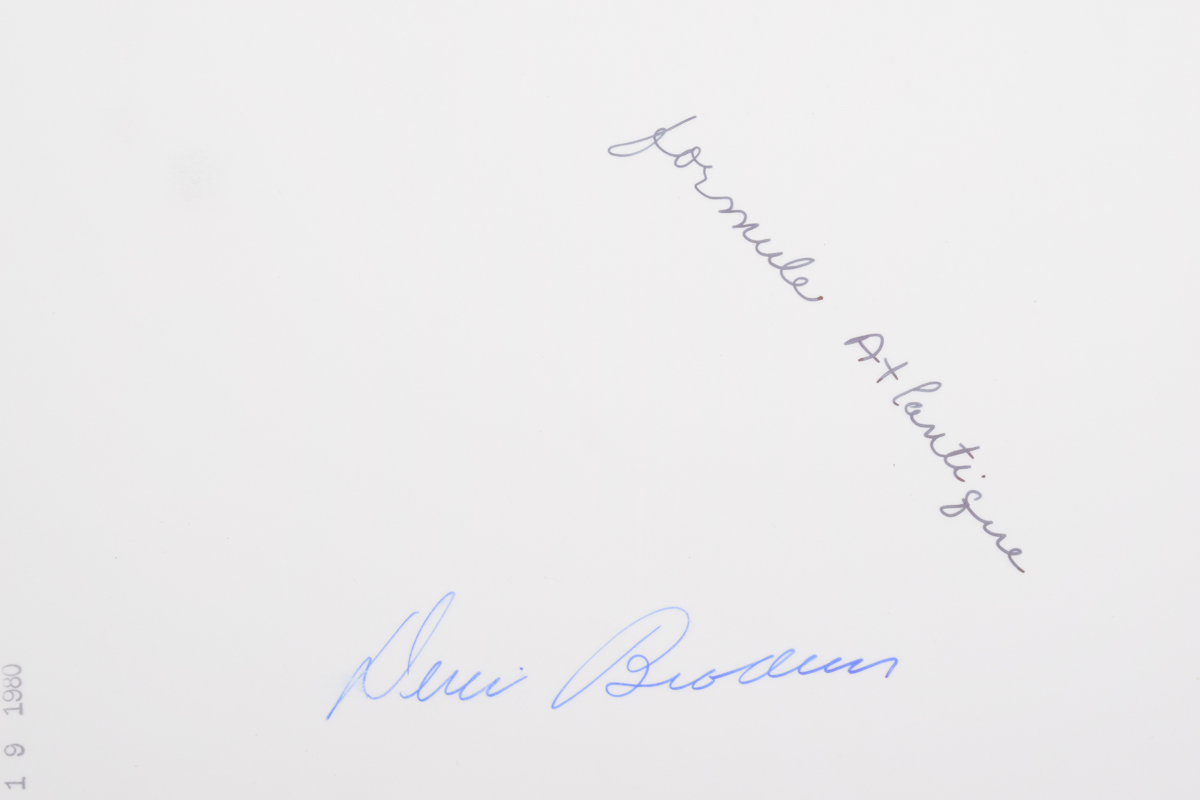 formule Atlantique
Denis Brodeur
19 1980